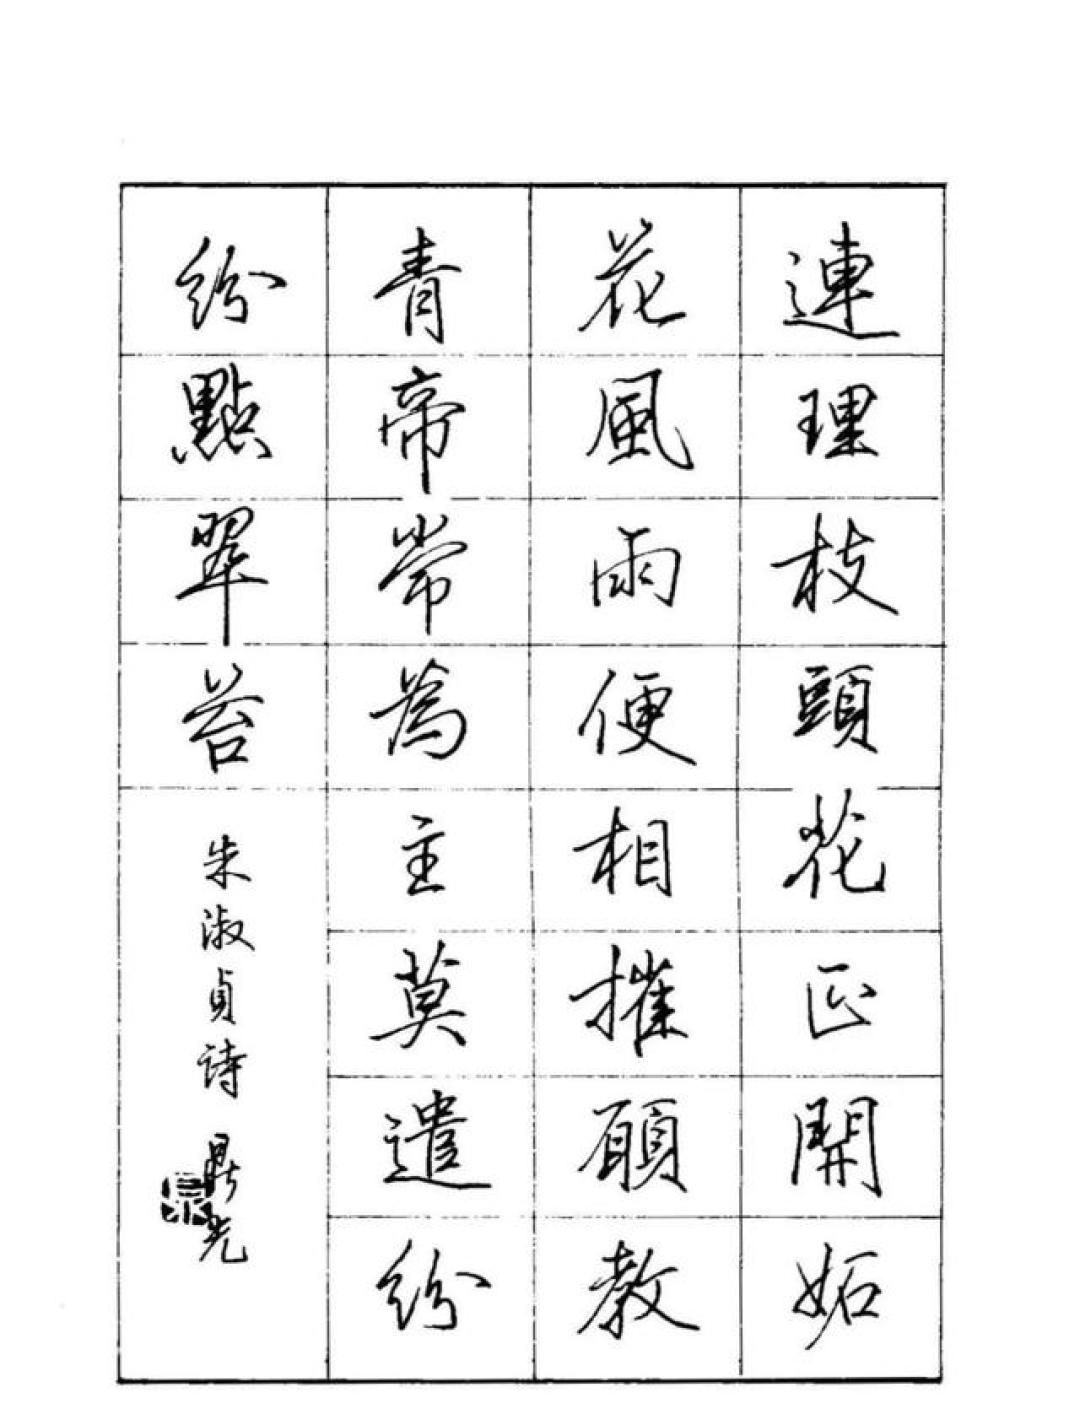 連理枝頭花正開妬
花風雨便相摧願教
青帝常為主莫遣紛
紛點翠苔
朱淑貞詩 鼎光